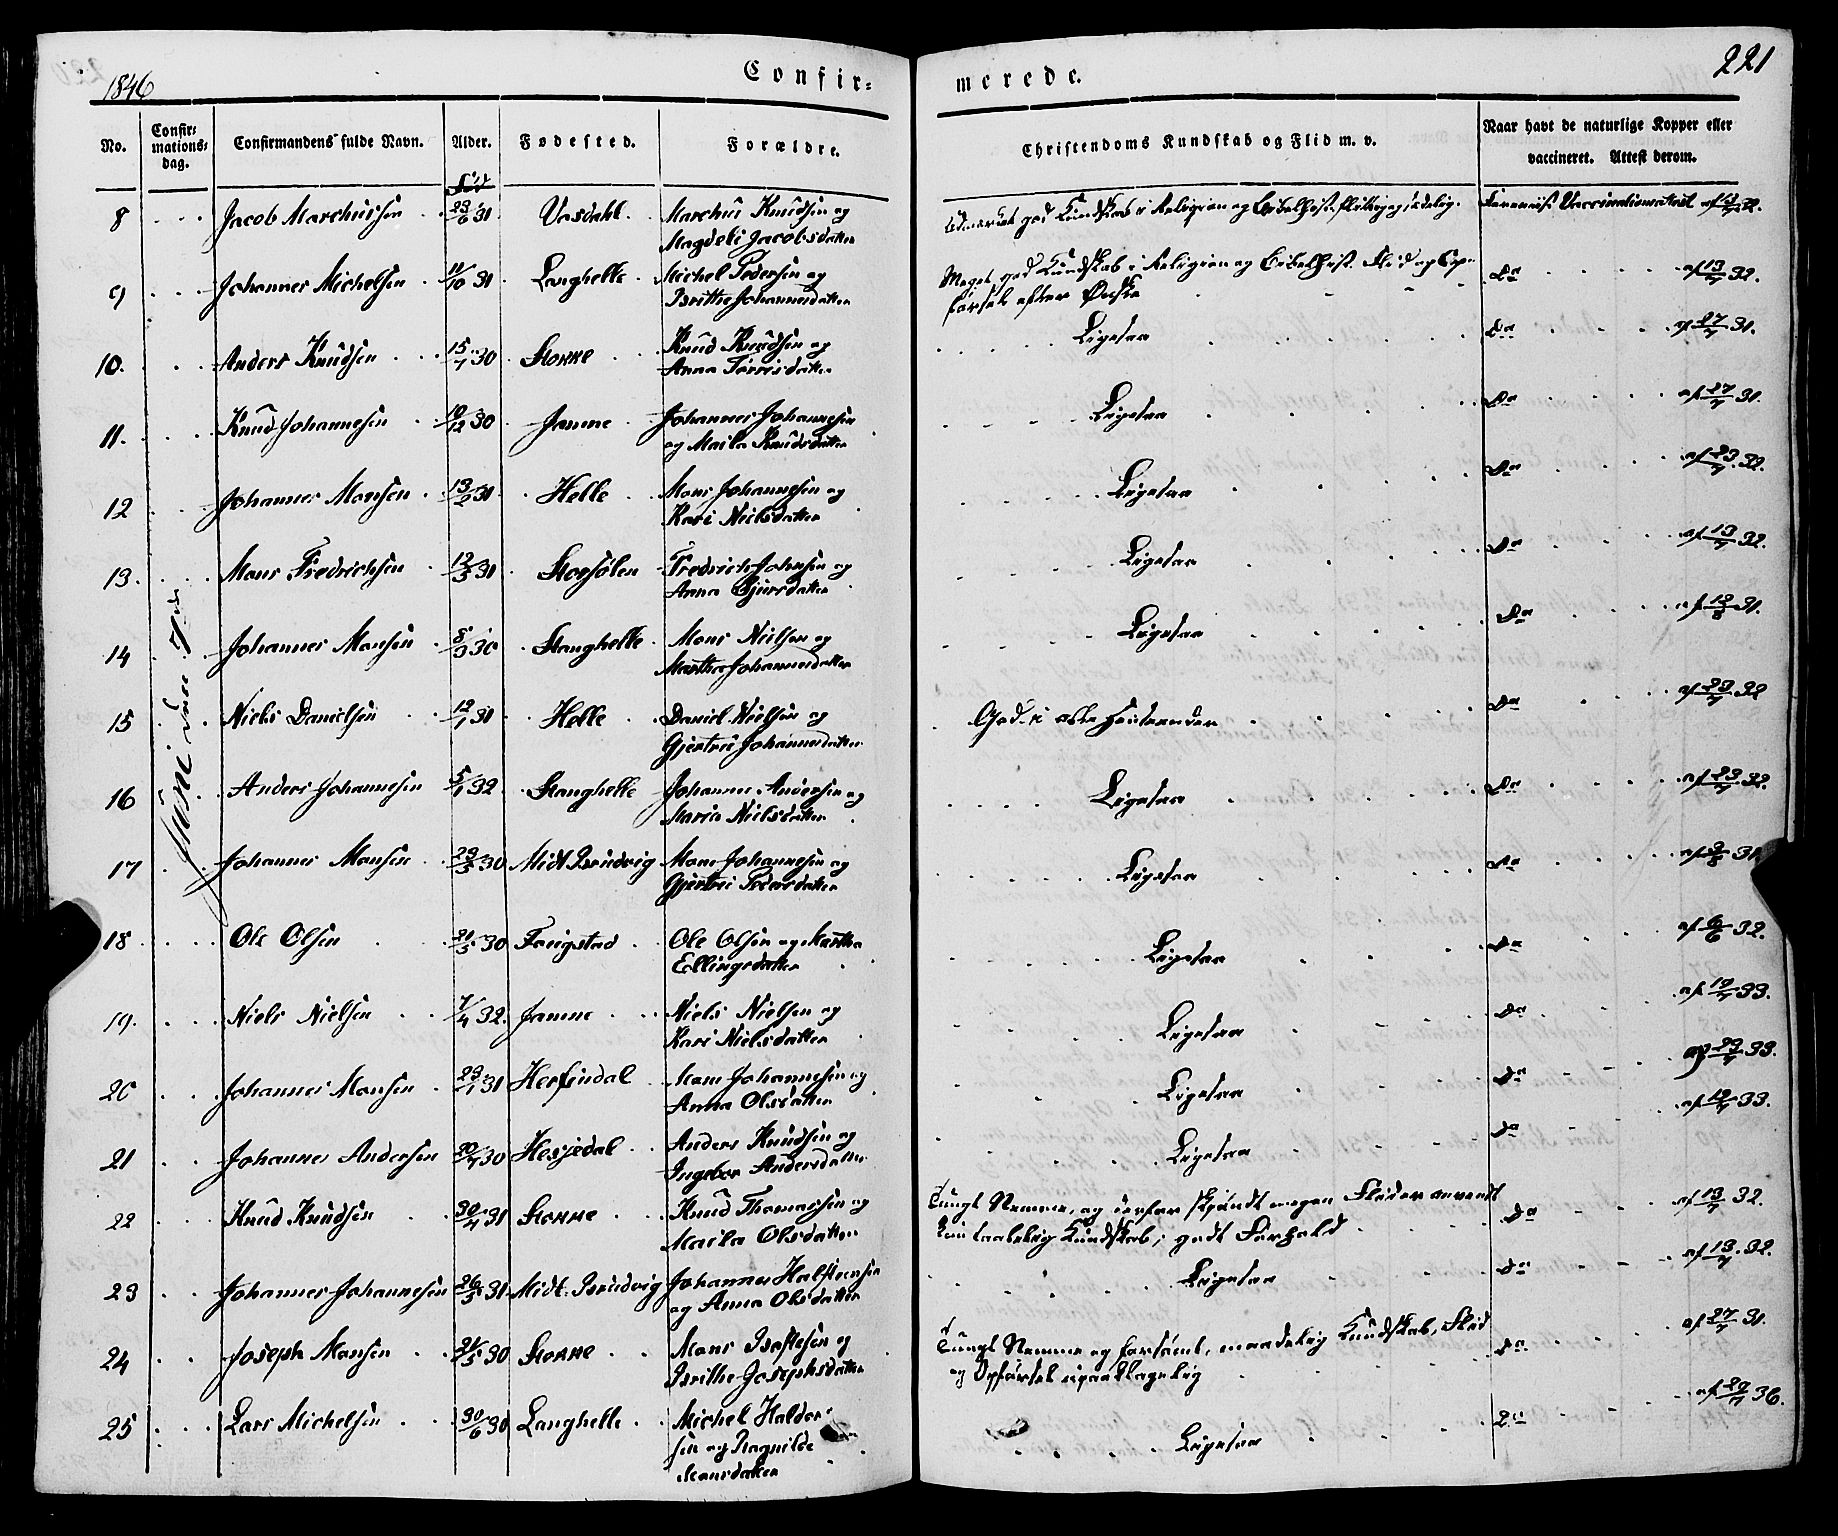 1846
Confir=
merede.
221
No.
Confir=
mations=
dag.
Confirmandens fulde Navn.
Alder.
Fødested.
Forældre.
Christendoms Kundskab og Flid m. v.
Naar havt de naturlige Kopper eller
vaccineret. Attest derom.
Juni den 7de
8 Jacob Marchussen 23/6 31 Vasdahl Marchus Knudsen og
Magdeli Jacobsdatter
Udmærket god Kundskab i Religion og Bibelhist. flittig og sædelig. Vaccinationsattest af 32.
9 Johannes Michelsen 11/10 31 Langhelle Michel Pedersen og
Brithe Johannesdatter
Meget god Kundskab i Religion og Bibelhist. Flid og Op-
førsel efter Ønske
Do af 13/7 32.
10. Anders Knudsen 15/7 30 Storre Knud Knudsen og
Anna Torrisdatter
Ligesaa Do af 27/7 31.
11. Knud Johannesen 10/12 30 Jamne Johannes Johannesen
og Maila Knudsdatter
Ligesaa Do af 27/7 31.
12 Johannes Monsen 13/2 31 Helle Mons Johannesen og
Kari Nielsdatter
Ligesaa Do af 23/7 32.
13. Mons Fredrichsen 12/3 31 Storsølen Fredrich Johnsen og
Anna Gjursdatter
Ligesaa Do af 13/7 32.
14 Johannes Monsen 30 Stanghelle Mons Nielsen og
Martha Johannesdatter
Ligesaa Do af 12/8 31.
15 Niels Danielsen 12/1 31 Helle Daniel Nielsen og
Gjertrui Johannesdatter
God i alle Henseender Do af 23/7 32
16 Anders Johannesen 5/1 32 Stanghelle Johannes Andersen og
Maria Nielsdatter
Ligesaa Do af 23/7 32.
17 Johannes Monsen 29/5 30 Midt Bruvig Mons Johannesen og
Gjertrui Pedersdatter
Ligesaa Do 31
18 Ole Olsen 21/5 30 Fougstad Ole Olsen og Martha
Ellingsdatter
Ligesaa Do af 6/6 32.
19. Niels Nielsen 7/4 32. Jamne Niels Nielsen og
Kari Nielsdatter
Ligesaa Do af 12/7 33.
20 Johannes Monsen 29/1 31 Herfindal Mons Johannesen og
Anna Olsdatter
Ligesaa Do af 23/7 33.
21 Johannes Andersen 30 Hesjedal Anders Knudsen og
Ingebor Andersdatter
Ligesaa Do af 12/7 33.
22 Knud Knudsen 30/4 31 Storre Knud Thomassen og
Maila Olsdatter
Tungt Nemme, og derfor skjøndt megen Flid er anvendt
kun taalelig Kundskab; godt Forhold
Do af 13/7 32.
23 Johannes Johannesen 26/3 31 Midt Bruvig Johannes Halsteensen
og Anna Olsdatter
Ligesaa Do af 13/7 32.
24 Joseph Monsen 21/5 30 Storre Mons Brottesen og
Brithe Josephsdatter
Tungt Nemme og forsømt, maadelig Kundskab, Flid
og Opførsel upaaklagelig
Do af 27/7 31.
25 Lars Michelsen 30/6 30 Langhelle Michel Haldor-
sen og Ragnilde
Monsdatter
Ligesaa Do af 29/7 36.